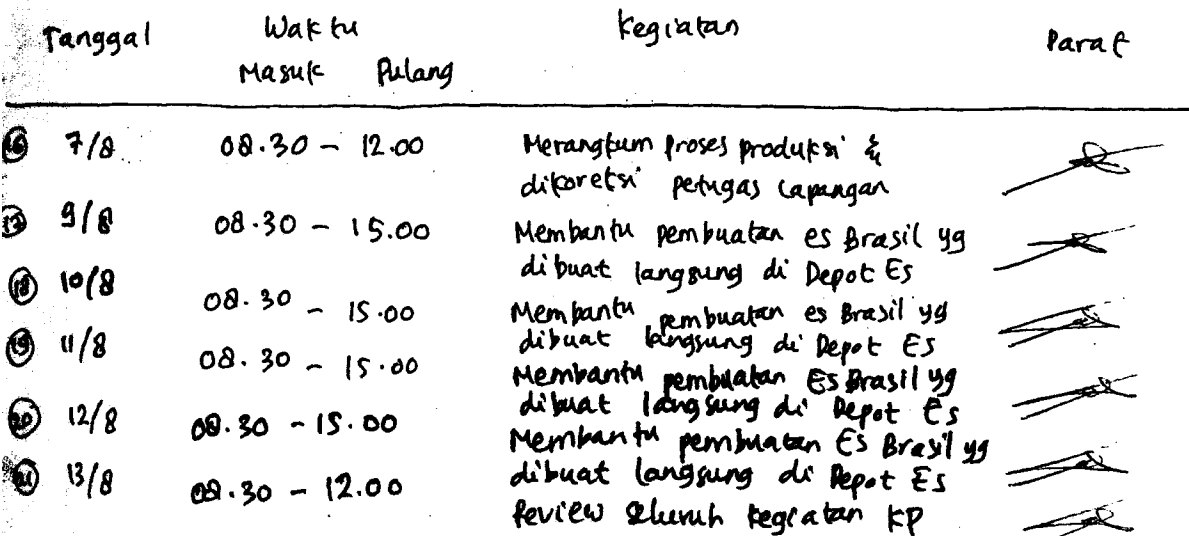 Tanggal Waktu Kegiatan Paraf
Masuk Pulang
16 7/8 08.30 - 12.00 Merangkum proses produksi &
dikoreksi petugas lapangan
17 9/8 08.30 - 15.00 Membantu pembuatan es Brasil yg
dibuat langsung di Depot Es
18 10/8 08.30 - 15.00 Membantu pembuatan es Brasil yg
dibuat langsung di Depot Es
19 11/8 08.30 - 15.00 Membantu pembuatan Es Brasil yg
dibuat langsung di Depot Es
20 12/8 08.30 - 15.00 Membantu pembuatan Es Brasil yg
dibuat langsung di Depot Es
21 13/8 08.30 - 12.00 Review seluruh kegiatan KP